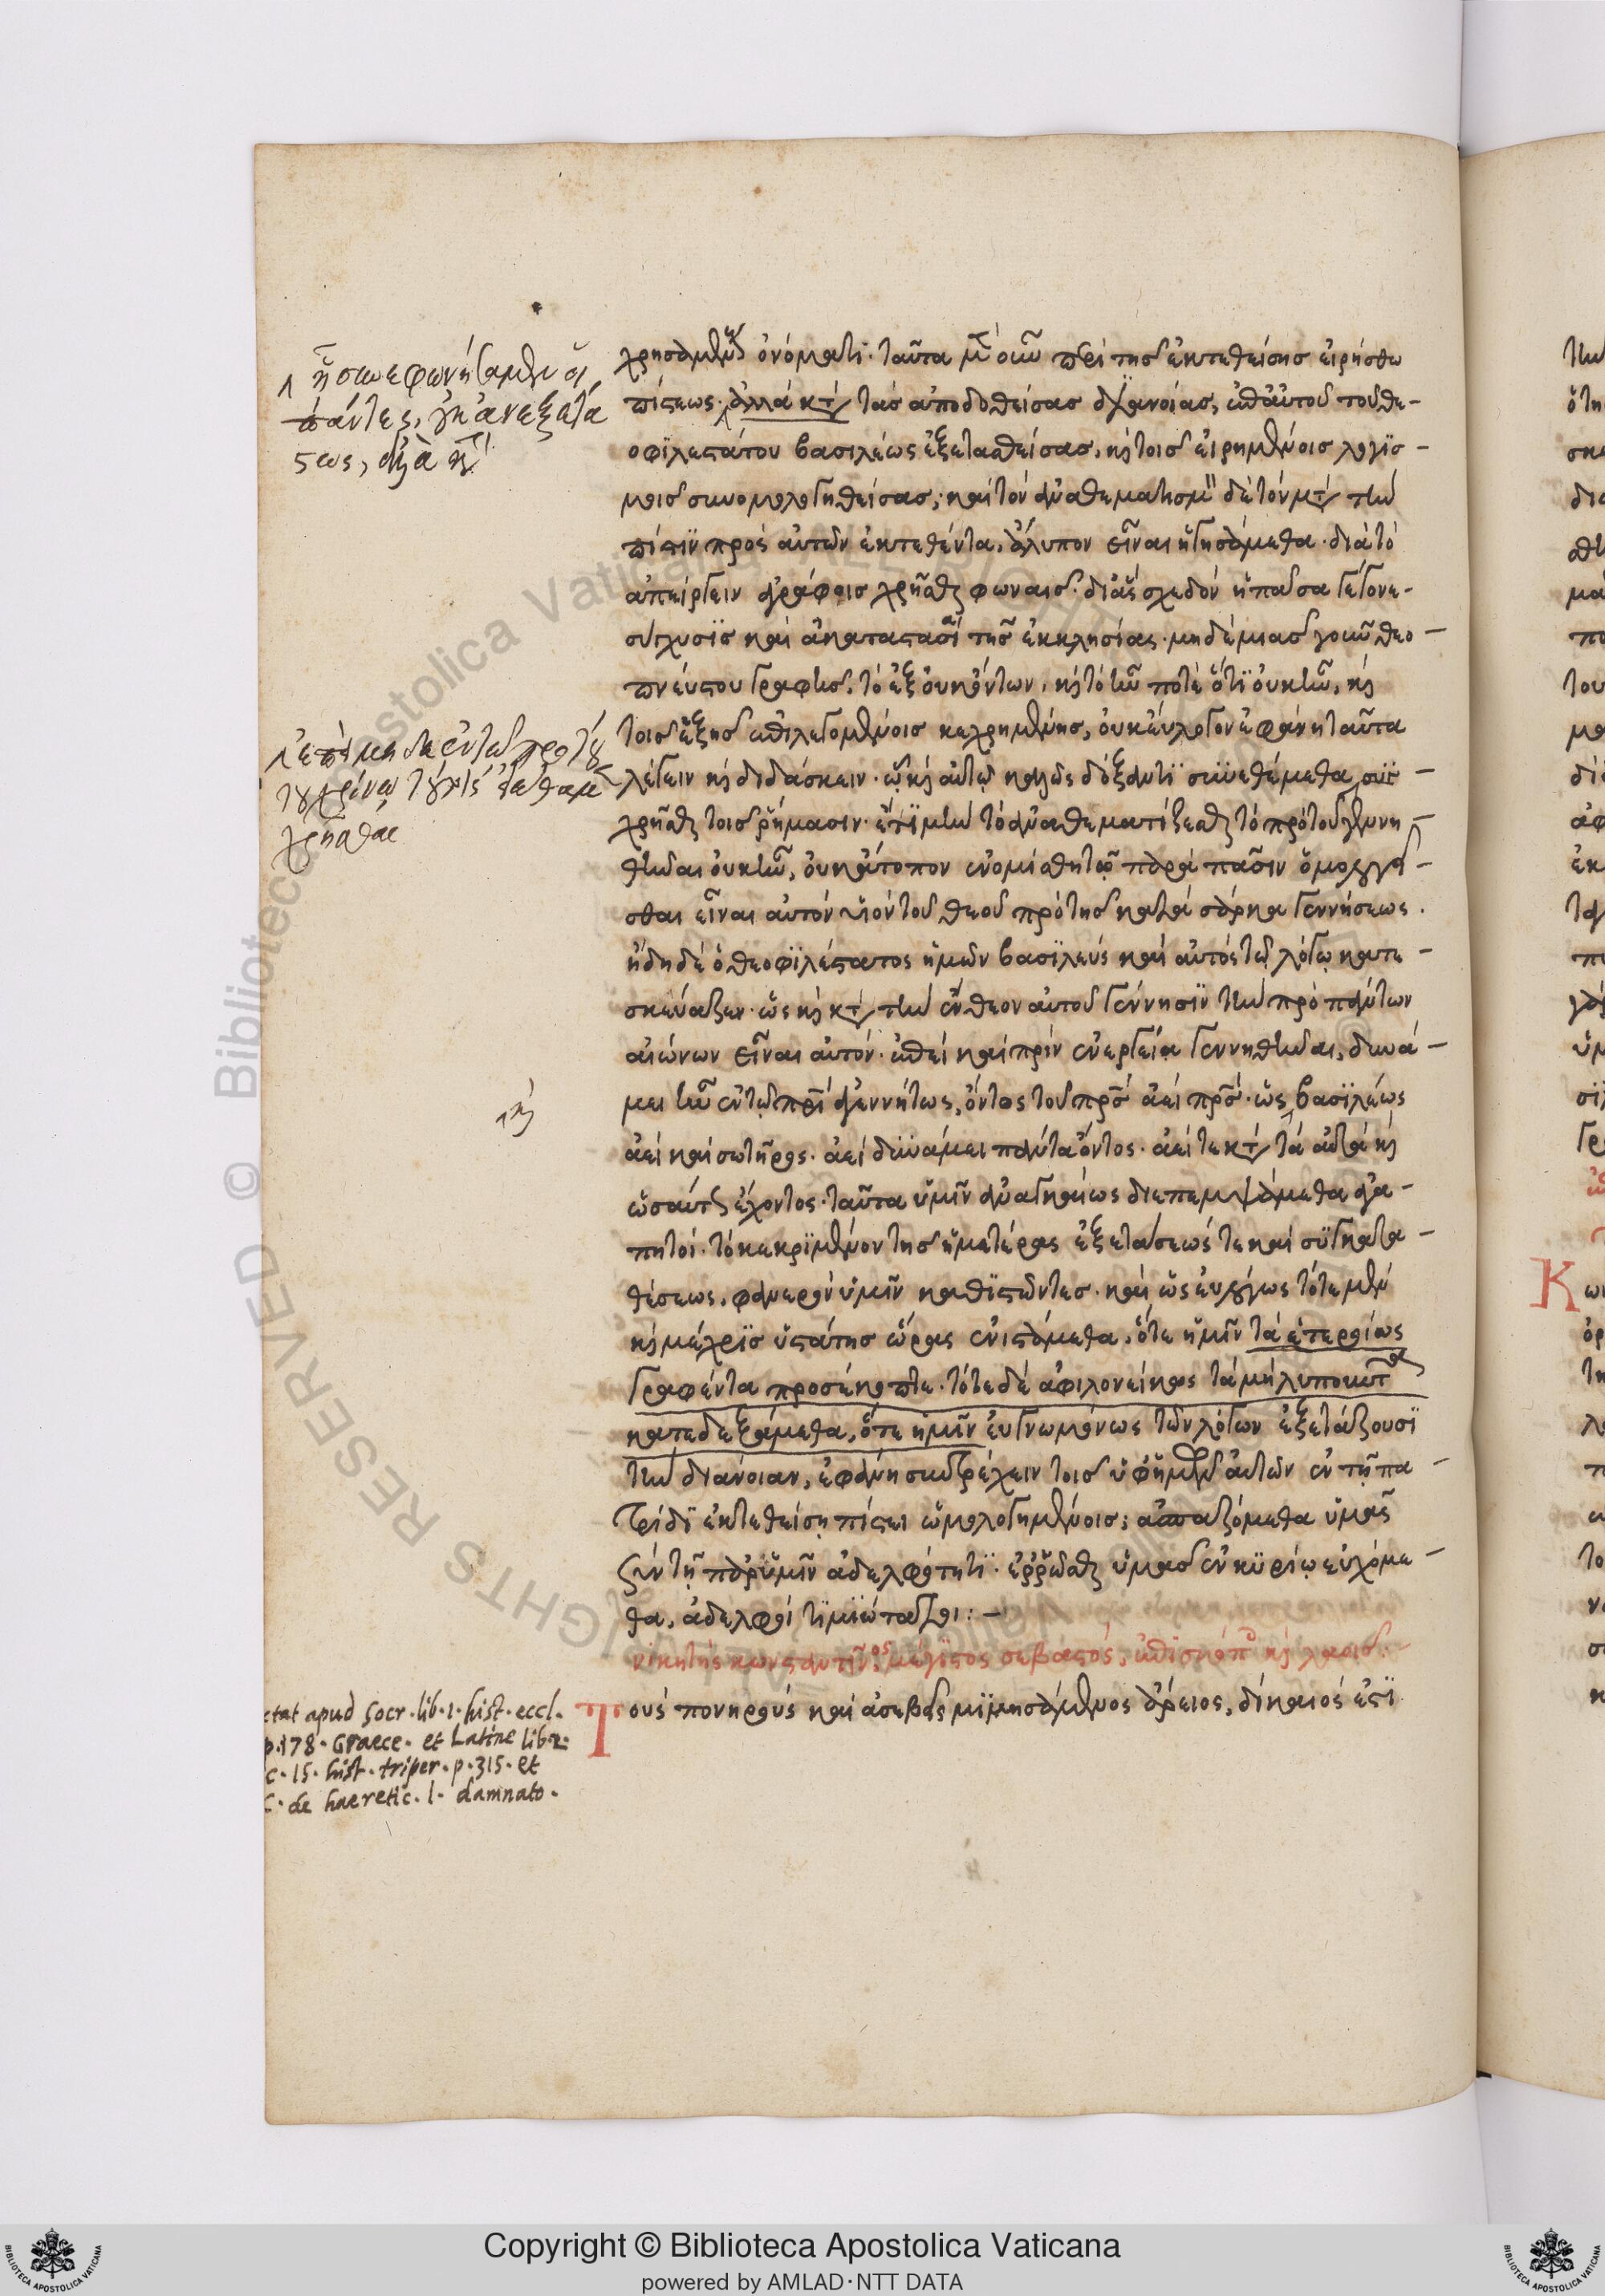 χρησαμένους ὀνόματι· ταῦτα μὲν οὖν περὶ τῆς ἐκτεθείσης εἰρήσθω
πίστεως· ἀλλὰ κατὰ τὰς ἀποδοθείσας διανοίας, ἐπ' αὐτοῦ τοῦ θε-
οφιλεστάτου βασιλέως ἐξετασθείσας, καὶ τοῖς εἰρημένοις λογισ-
μοῖς συνομολογηθείσας· καὶ τὸν ἀναθεματισμὸν δὲ τὸν μετὰ τὴν
πίστιν πρὸς αὐτῶν ἐκτεθέντα, ἄλυπον εἶναι ἡγησάμεθα· διὰ τὸ
ἀπείργειν ἀγράφοις χρῆσθαι φωναῖς· δι' ἃς σχεδὸν ἡ πᾶσα γέγονε-
σύγχυσις καὶ ἀκαταστασία τῆς ἐκκλησίας· μηδεμιᾶς γοῦν θεο-
πνεύστου γραφῆς, τὸ ἐξ οὐκ ὄντων, καὶ τὸ ἦν ποτὲ ὅτι οὐκ ἦν, καὶ
τοῖς ἑξῆς ἐπιλεγομένοις κεχρημένης, οὐκ εὔλογον ἐφάνη ταῦτα
λέγειν καὶ διδάσκειν· ᾧ καὶ αὐτῷ καλῶς δόξαντι συνεθέμεθα
χρῆσθαι τοῖς ῥήμασιν· ἔτι μὴν τὸ ἀναθεματίζεσθαι τὸ πρὸ τοῦ γεννη-
θῆναι οὐκ ἦν, οὐκ ἄτοπον ἐνομίσθη τῷ παρὰ πᾶσιν ὁμολογεῖ-
σθαι εἶναι αὐτὸν υἱὸν τοῦ θεοῦ πρὸ τῆς κατὰ σάρκα γεννήσεως.
ἤδη δὲ ὁ θεοφιλέστατος ἡμῶν βασιλεὺς καὶ αὐτὸς τῷ λόγῳ κατε-
σκεύαζεν· ὡς καὶ κατὰ τὴν ἔνθεον αὐτοῦ γέννησιν τὴν πρὸ πάντων
αἰώνων εἶναι αὐτόν· ἐπεὶ καὶ πρὶν ἐνεργείᾳ γεννηθῆναι, δυνά-
μει ἦν ἐν τῷ πατρὶ ἀγεννήτως, ὄντος τοῦ πατρὸς ἀεὶ πατρός· ὡς βασιλέως
ἀεὶ καὶ σωτῆρος· ἀεὶ δυνάμει πάντα ὄντος· ἀεί τε κατὰ τὰ αὐτὰ καὶ
ὡσαύτως ἔχοντος· ταῦτα ὑμῖν ἀναγκαίως διεπεμψάμεθα ἀγα-
πητοί· τὸ κεκριμένον τῆς ἡμετέρας ἐξετάσεώς τε καὶ συγκατα-
θέσεως, φανερὸν ὑμῖν καθιστῶντες· καὶ ὡς εὐλόγως τότε μὲν
καὶ μέχρις ὑστάτης ὥρας ἐνιστάμεθα, ὅτε ἡμῖν τὰ ἑτεροίως
γραφέντα προσέκοπτε· τότε δὲ ἀφιλονείκως τὰ μὴ λυποῦντα
κατεδεξάμεθα, ὅτε ἡμῖν εὐγνωμόνως τῶν λόγων ἐξετάζουσι
τὴν διάνοιαν, ἐφάνη συντρέχειν τοῖς ὑφ' ἡμῶν αὐτῶν ἐν τῇ πα-
τρίδι ἐκτεθείσῃ πίστει ὡμολογημένοις· ἀσπαζόμεθα ὑμᾶς
σὺν τῇ παρ' ὑμῖν ἀδελφότητι· ἐρρῶσθαι ὑμᾶς ἐν κυρίῳ εὐχόμε-
θα, ἀδελφοὶ τιμιώτατοι:—
νικητὴς κωνσταντῖνος μέγιστος σεβαστός, ἐπισκόποις καὶ λαοῖς.
Τοὺς πονηροὺς καὶ ἀσεβεῖς μιμησάμενος ἄρειος, δίκαιός ἐστι
ᾗ συνεφωνήσαμεν οἱ
πάντες, οὐκ ἀνεξετά
στως, ἀλλὰ κατὰ
καὶ
ctat apud Socr. lib. 1. hist. eccl.
p. 178. Graece. et Latine lib. 2.
c. 15. hist. triper. p. 315. et
C. de haeretic. l. damnato.
Κ
© Biblioteca Apostolica Vaticana
ALL RIGHTS RESERVED
Copyright © Biblioteca Apostolica Vaticana
powered by AMLAD·NTT DATA
BIBLIOTECA APOSTOLICA VATICANA
BIBLIOTECA APOSTOLICA VATICANA